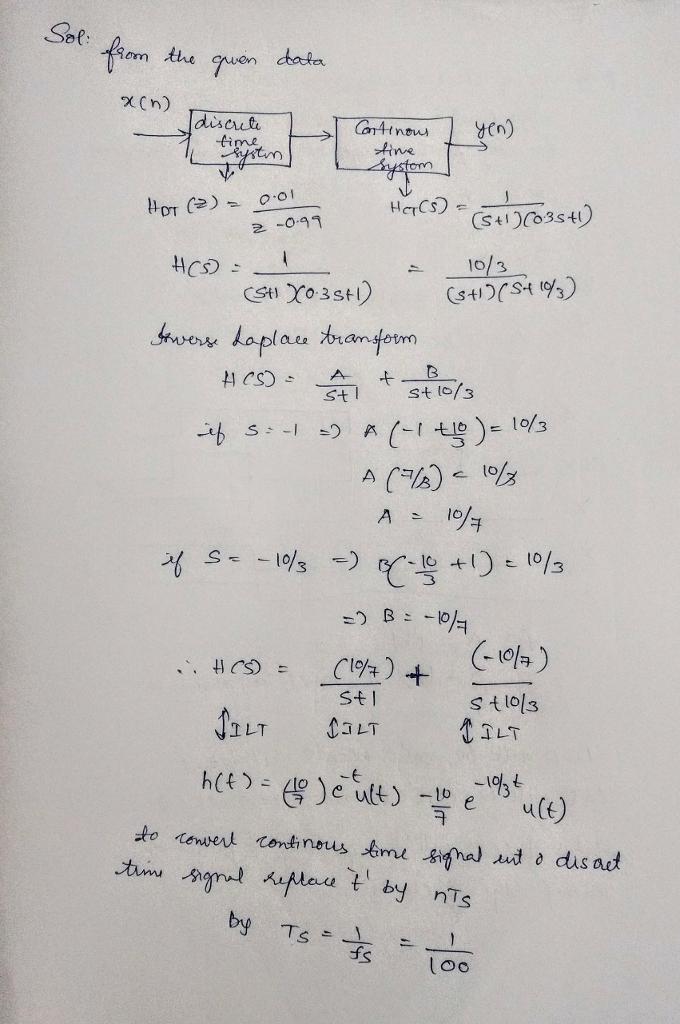 Sol:
from the given data
x(n)
discrete time system
Continous time system
y(n)
H_DT (z) = 0.01 / z - 0.99
H_CT(s) = 1 / (s+1)(0.3s+1)
H(s) = 1 / (s+1)(0.3s+1) = 10/3 / (s+1)(s+10/3)
Inverse Laplace transform
H(s) = A / s+1 + B / s+10/3
if s = -1 => A (-1 + 10/3) = 10/3
A (7/3) = 10/3
A = 10/7
if s = -10/3 => B(-10/3 + 1) = 10/3
=> B = -10/7
∴ H(s) = (10/7) / s+1 + (-10/7) / s+10/3
↕ILT ↕ILT ↕ILT
h(t) = (10/7) e^-t u(t) - 10/7 e^-10/3 t u(t)
to convert continous time signal into disret
time signal replace 't' by nTs
by Ts = 1/fs = 1/100